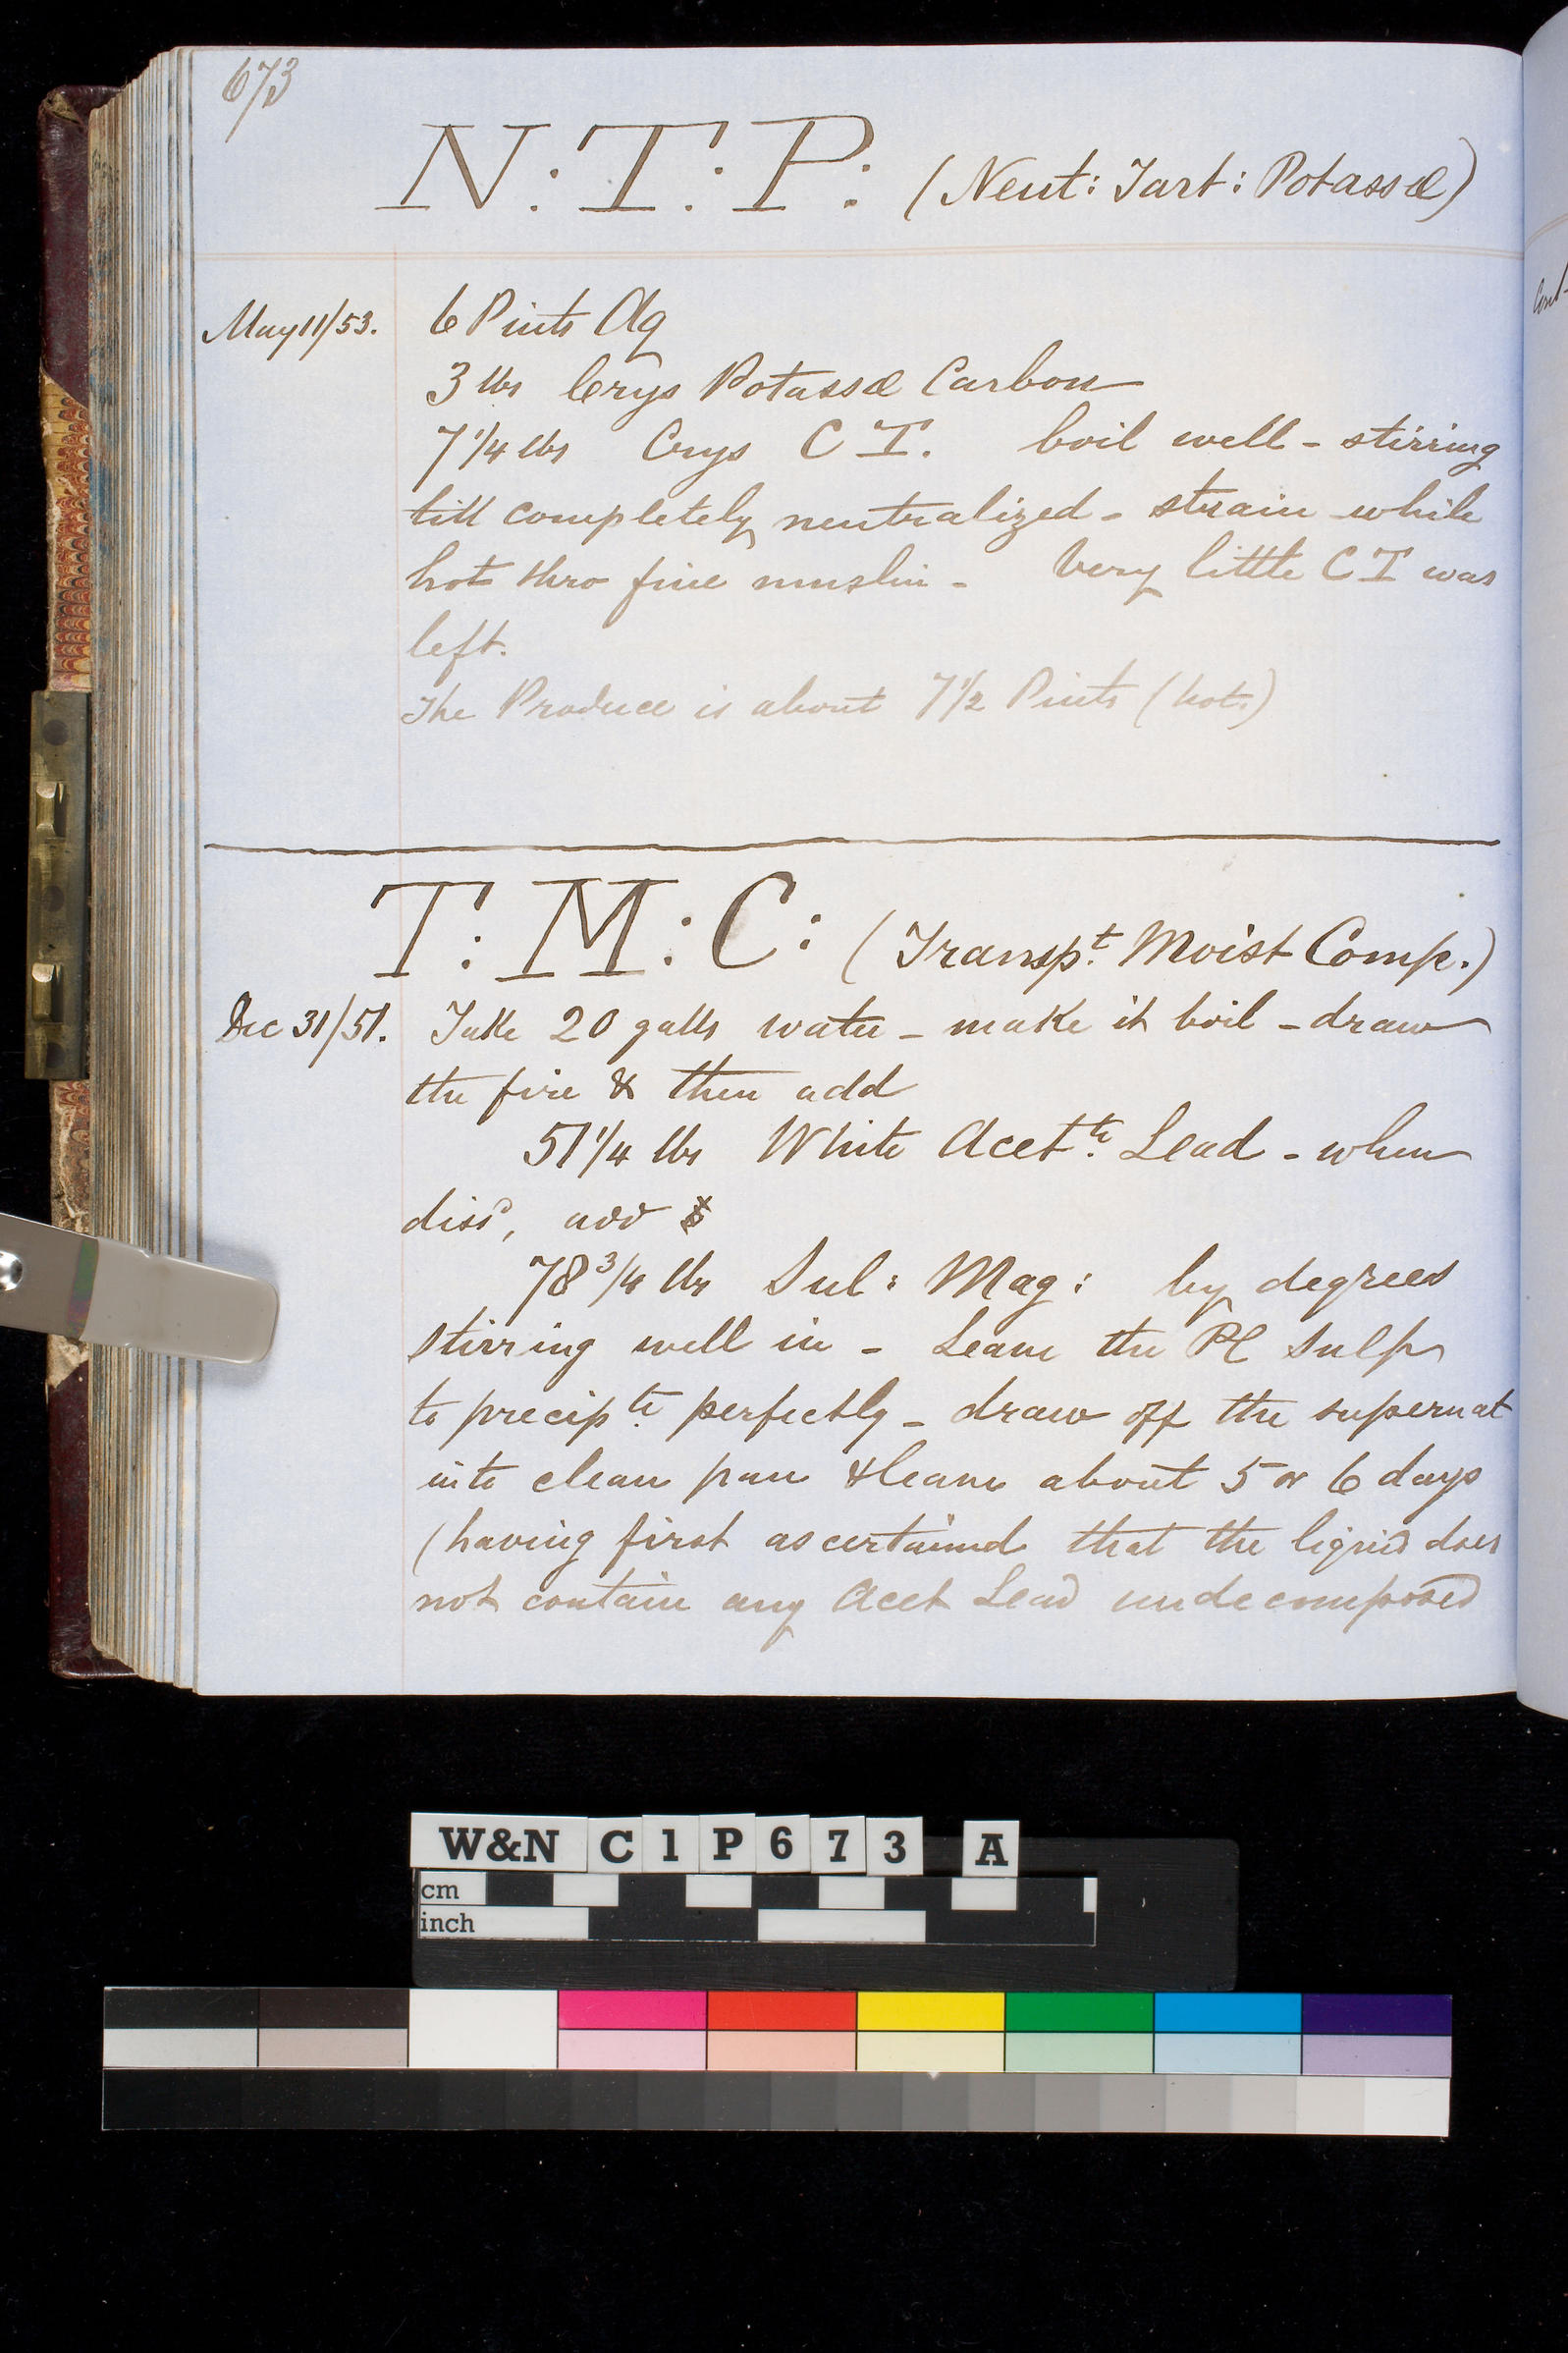 673
N: T: P: (Neut: Tart: Potassæ)
May 11/53. 6 Pints Aq
3 lbs Crys Potassæ Carbon
7 1/4 lbs Crys C T. boil well - stirring
till completely neutralized - strain while
hot thro fine muslin - Very little C T was
left.
The Produce is about 7 1/2 Pints (hot.)
T: M: C: (Transpt. Moist Comp.)
Dec 31/51. Take 20 galls water - make it boil - draw
the fire & then add
51 1/4 lbs White Acette. Lead - when
dissd, add
78 3/4 lbs Sul: Mag: by degrees
stirring well in - Leave the Pl Sulp
to precipte. perfectly - draw off the supernat
into clean pan & leave about 5 or 6 days
(having first ascertained that the liquid does
not contain any Acet Lead undecomposed
W&N C1P673 A
cm
inch